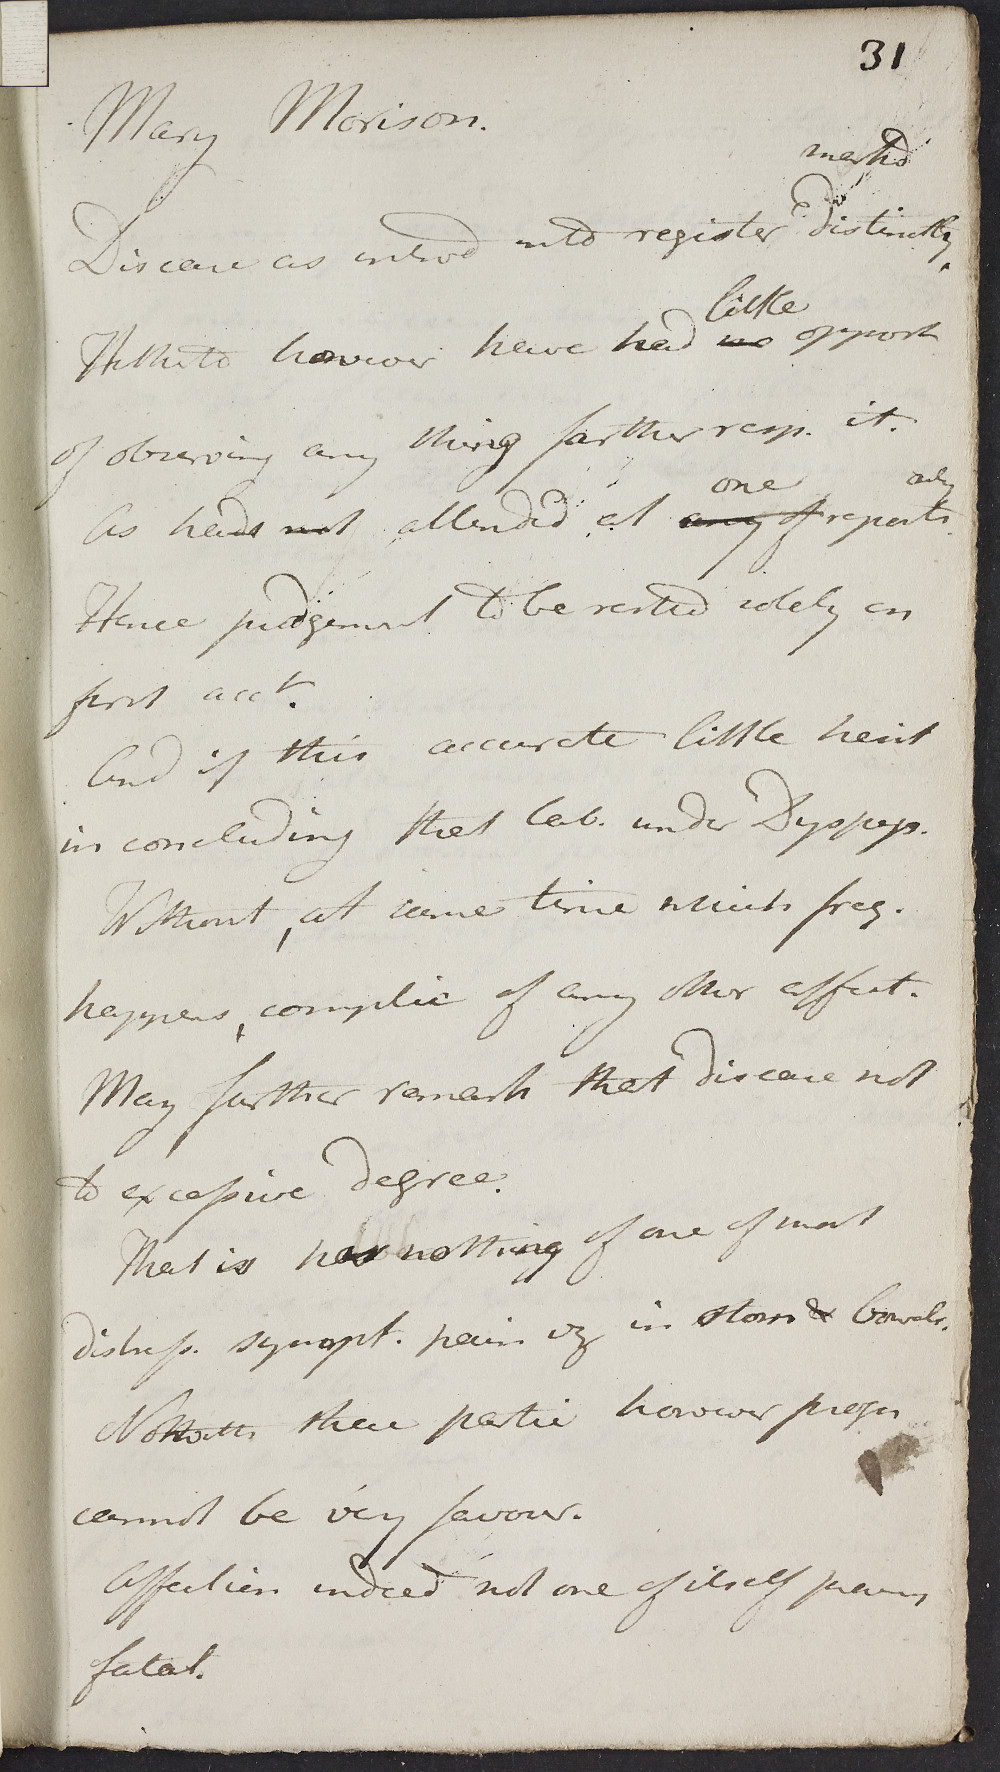 31
Mary Morison.
markd
Disease as introd into register distinctly,
little
Hitherto however have had no opport
of observing any thing farther resp. it.
one only
As hads not attended at any of reports.
Hence judgement to be rested solely on
first acct.
And if this accurate little hesit
in concluding that lab. under Dyspeps.
Without, at same time which freq.
happens, complic of any other affect.
May further remark that disease not
to excessive degree.
That is has nothing of one of most
distress. sympt. pain vz in stom & bowels.
Notwith these partic however progn
cannot be very favour.
Affection indeed not one of itself
fatal.